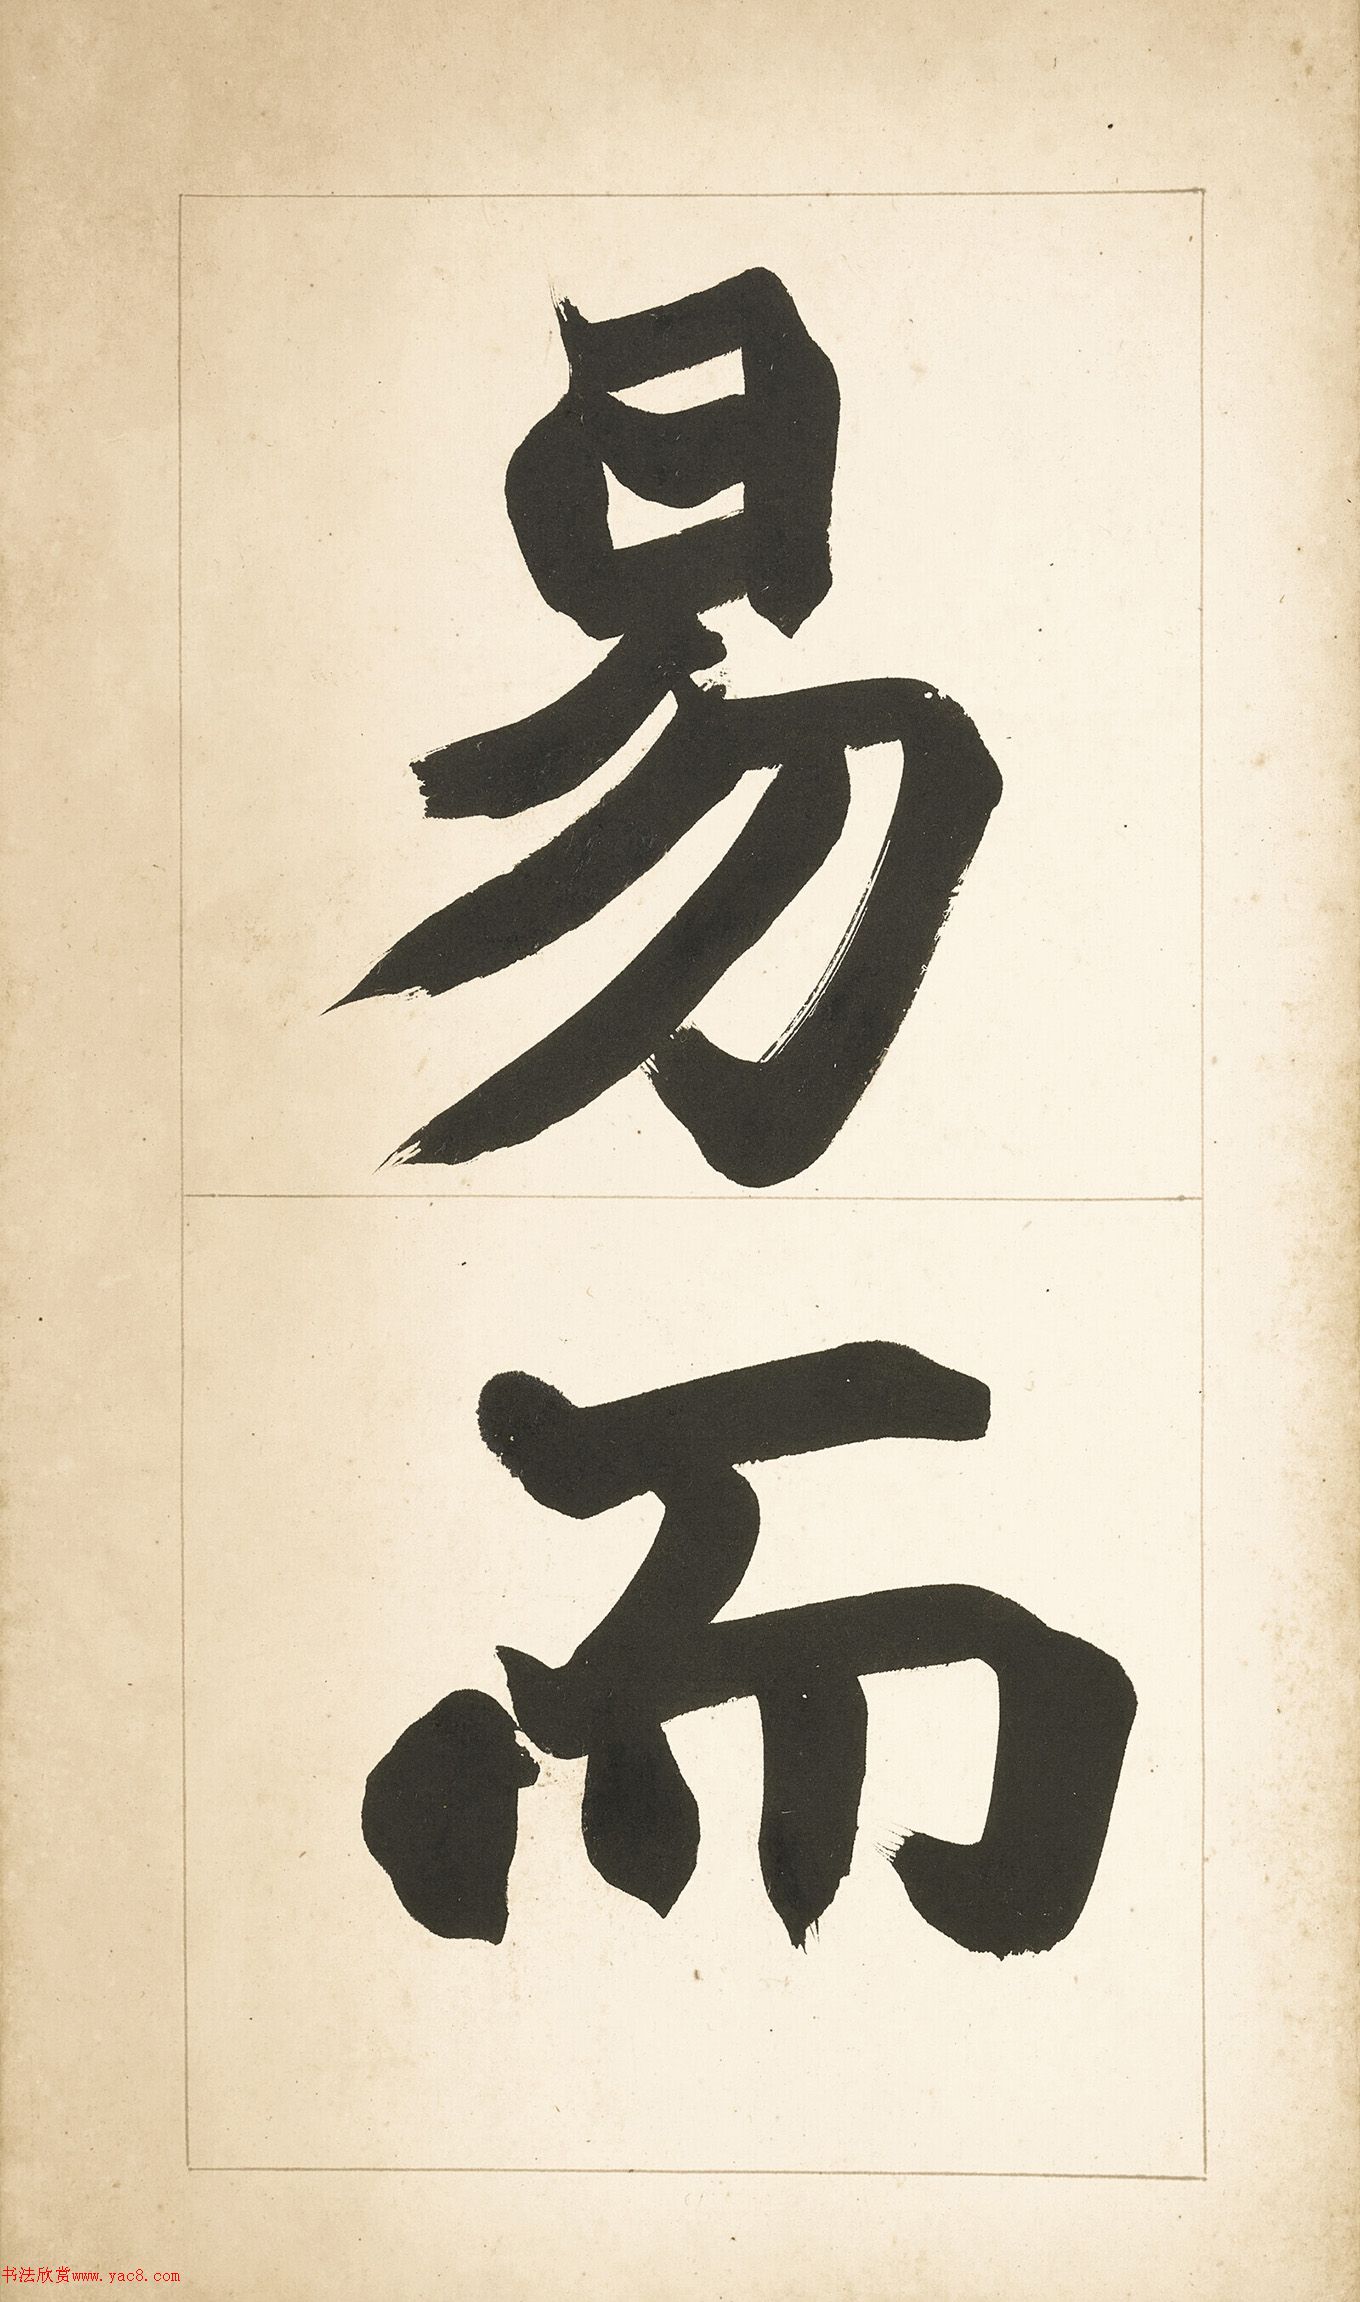 易
而
书法欣赏www.yac8.com